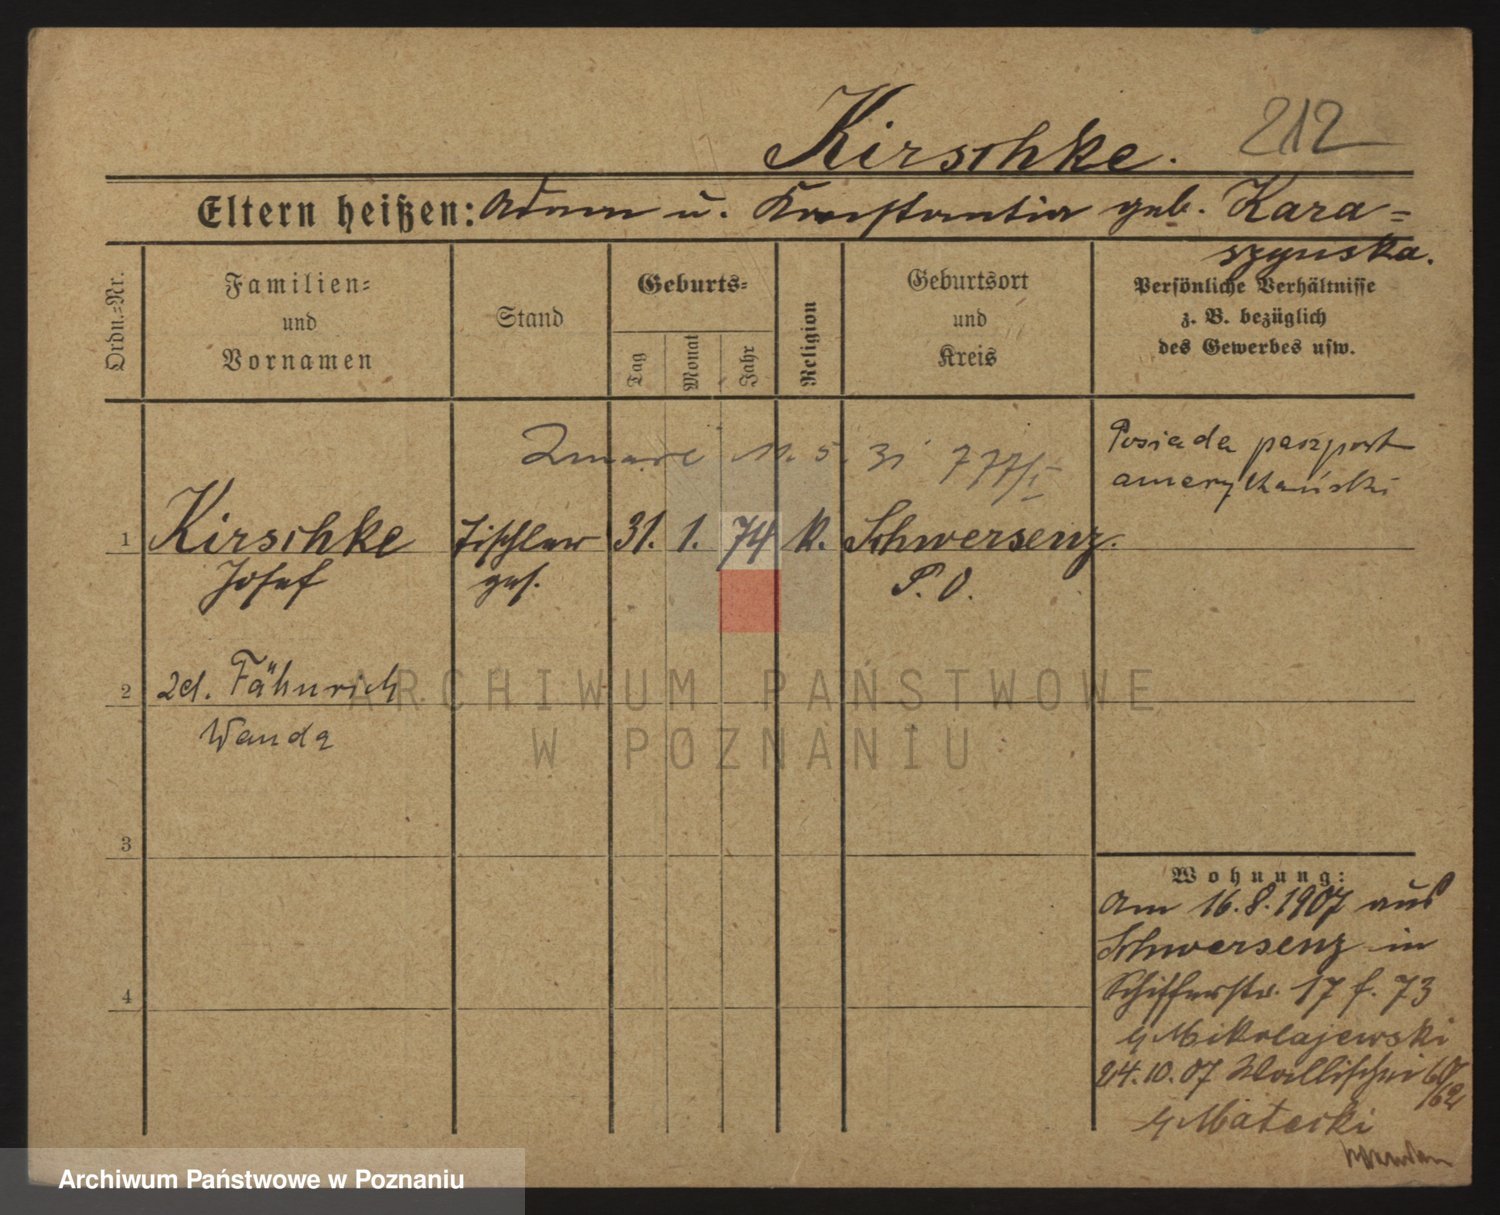 Kirschke. 212
Eltern heißen: Adam u. Konstantia geb. Kara=
szynska.
Ordn.=Nr.
Familien=
und
Vornamen
Stand
Geburts=
Tag
Monat
Jahr
Religion
Geburtsort
und
Kreis
Persönliche Verhältnisse
z. B. bezüglich
des Gewerbes usw.
Zmarł 11. 5. 31 777/I
Posiada paszport
amerykański
1 Kirschke Tischler 31. 1. 74 k. Schwersenz.
Josef ges. P. O.
2 2d. Fähnrich
Wanda
3
4
Wohnung:
Am 16.8.1907 aus
Schwersenz in
Schifferstr. 17 f. 73
b/Mikolajewski
24.10.07 Wallischei 60/62
b/Mateski
ARCHIWUM PAŃSTWOWE
W POZNANIU
Archiwum Państwowe w Poznaniu